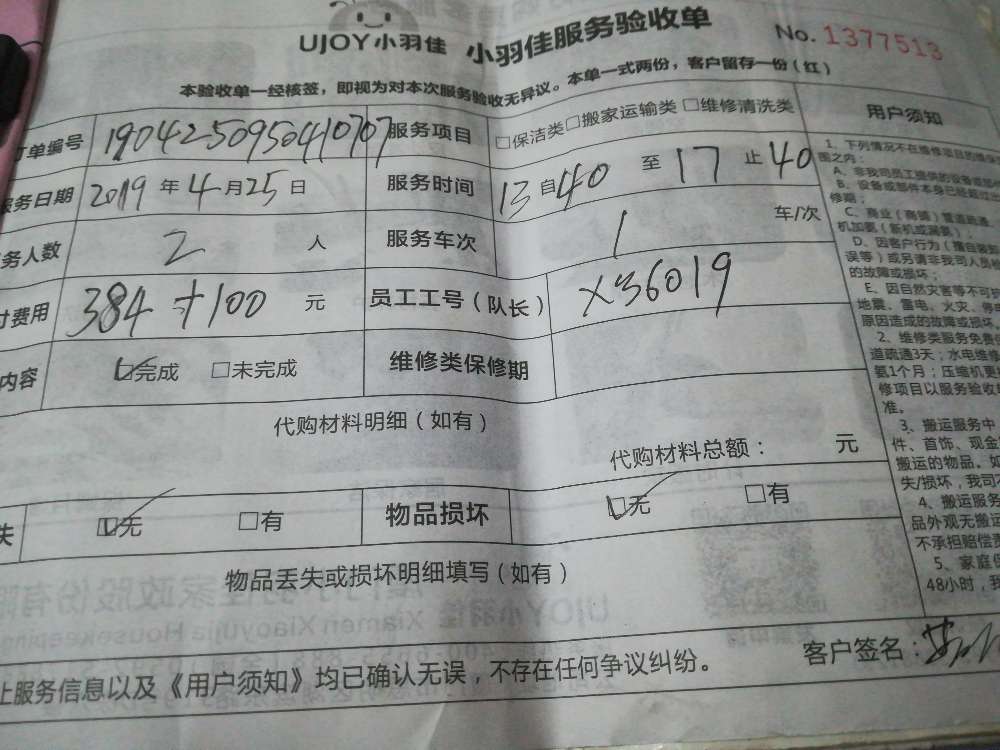 UJOY小羽佳 小羽佳服务验收单
No. 1377513
本验收单一经核签，即视为对本次服务验收无异议。本单一式两份，客户留存一份（红）
订单编号 1904250950410707 服务项目 □保洁类□搬家运输类 □维修清洗类
服务日期 2019 年 4 月 25 日 服务时间 13 自 40 至 17 止 40
务人数 2 人 服务车次 1 车/次
付费用 384+100 元 员工工号（队长） X36019
内容 ☑完成 □未完成 维修类保修期
代购材料明细（如有）
代购材料总额： 元
失 ☑无 □有 物品损坏 ☑无 □有
物品丢失或损坏明细填写（如有）
上服务信息以及《用户须知》均已确认无误，不存在任何争议纠纷。
客户签名：
用户须知
1、下列情况不在维修项目的维保
围之内：
A、非我司员工提供的设备或部件
B、设备或部件本身已经超过
修期；
C、商业（商铺）管道疏通、
机加氨（新机或漏氨）；
D、因客户行为（擅自
误等）或另请非我司人员
的故障或损坏；
E、因自然灾害等不可抗
地震、雷电、火灾、停电
原因造成的故障或损坏
2、维修类服务免费保
道疏通3天；水电维修
氨1个月；压缩机更
修项目以服务验收
准。
3、搬运服务中
件、首饰、现金
搬运的物品，如
失/损坏，我司不
4、搬运服务
品外观无搬运
不承担赔偿责
5、家庭保
48小时，我